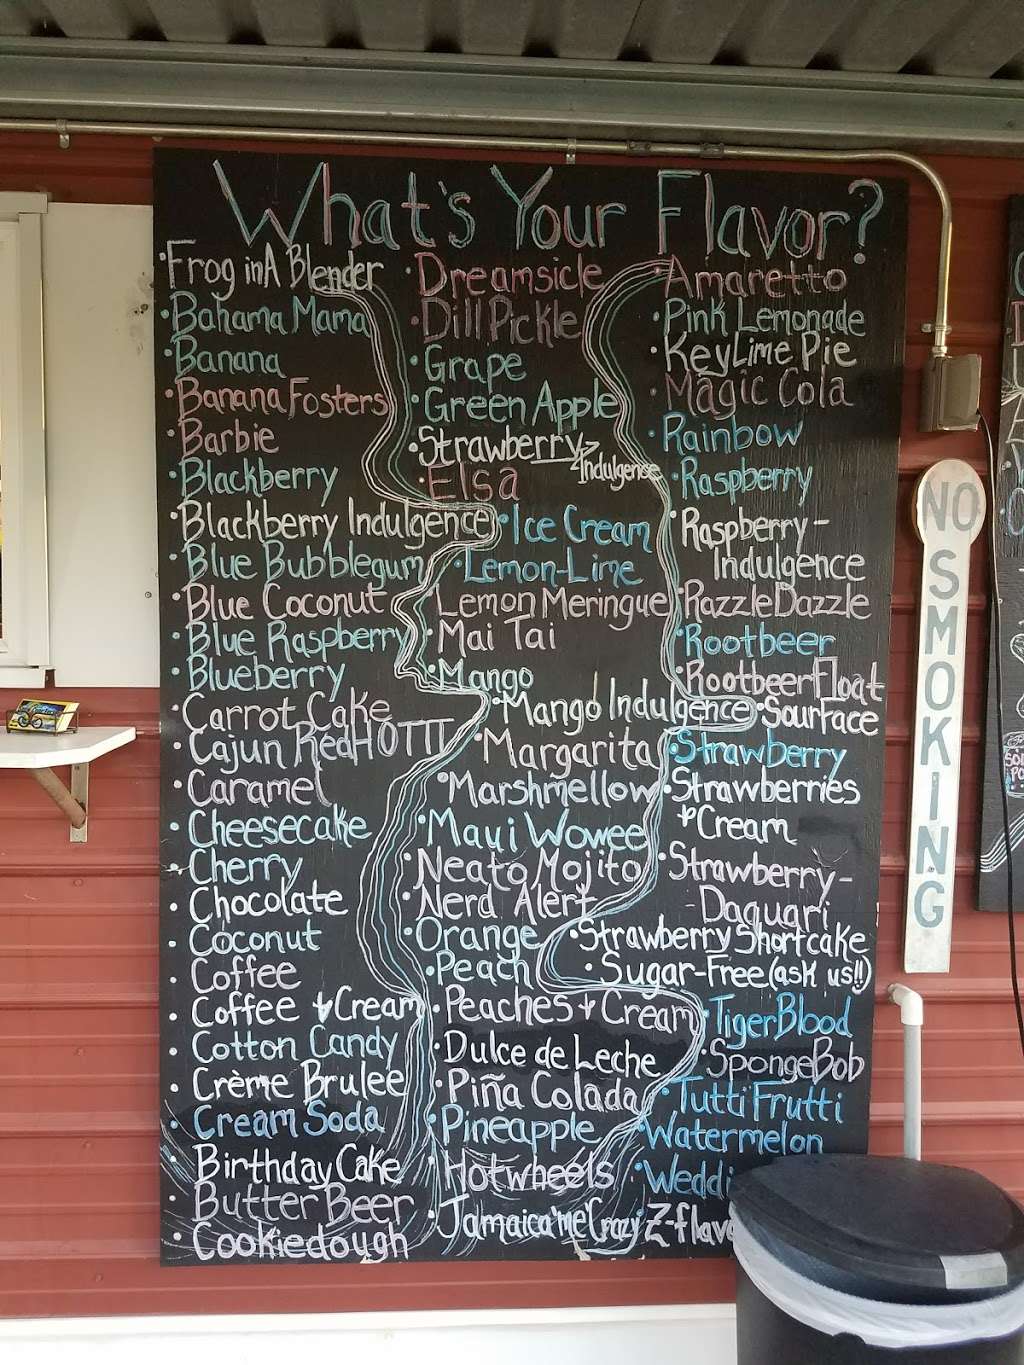 What's Your Flavor?
• Frog in A Blender
• Bahama Mama
• Banana
• Banana Fosters
• Barbie
• Blackberry
• Blackberry Indulgence
• Blue Bubblegum
• Blue Coconut
• Blue Raspberry
• Blueberry
• Carrot Cake
• Cajun RedHOTTT
• Caramel
• Cheesecake
• Cherry
• Chocolate
• Coconut
• Coffee
• Coffee & Cream
• Cotton Candy
• Crème Brulee
• Cream Soda
• Birthday Cake
• Butter Beer
• Cookiedough
• Dreamsicle
• Dill Pickle
• Grape
• Green Apple
• Strawberry
Indulgence
• Elsa
• Ice Cream
• Lemon-Lime
Lemon Meringue
• Mai Tai
• Mango
• Mango Indulgence
• Margarita
• Marshmellow
• Maui Wowee
• Neato Mojito
• Nerd Alert
• Orange
• Peach
• Peaches & Cream
• Dulce de Leche
• Piña Colada
• Pineapple
• Hotwheels
• Jamaica me Crazy
• Amaretto
• Pink Lemonade
• Key Lime Pie
• Magic Cola
• Rainbow
• Raspberry
• Raspberry-
Indulgence
• RazzleDazzle
• Rootbeer
• Rootbeer Float
• Sourface
• Strawberry
• Strawberries
& Cream
• Strawberry-
-Daquari
• Strawberry Shortcake
• Sugar-Free (ask us!!)
• TigerBlood
• SpongeBob
• Tutti Frutti
• Watermelon
• Weddi
Z-flavo
NO
SMOKING